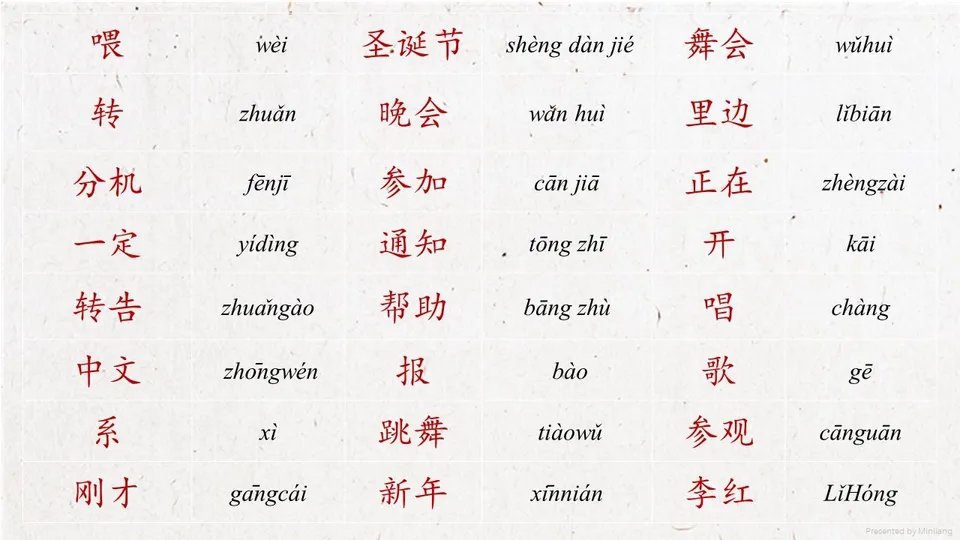 喂 wèi 圣诞节 shèng dàn jié 舞会 wǔhuì
转 zhuǎn 晚会 wǎn huì 里边 lǐbiān
分机 fēnjī 参加 cān jiā 正在 zhèngzài
一定 yídìng 通知 tōng zhī 开 kāi
转告 zhuǎngào 帮助 bāng zhù 唱 chàng
中文 zhōngwén 报 bào 歌 gē
系 xì 跳舞 tiàowǔ 参观 cānguān
刚才 gāngcái 新年 xīnnián 李红 LǐHóng
Presented by Minliang